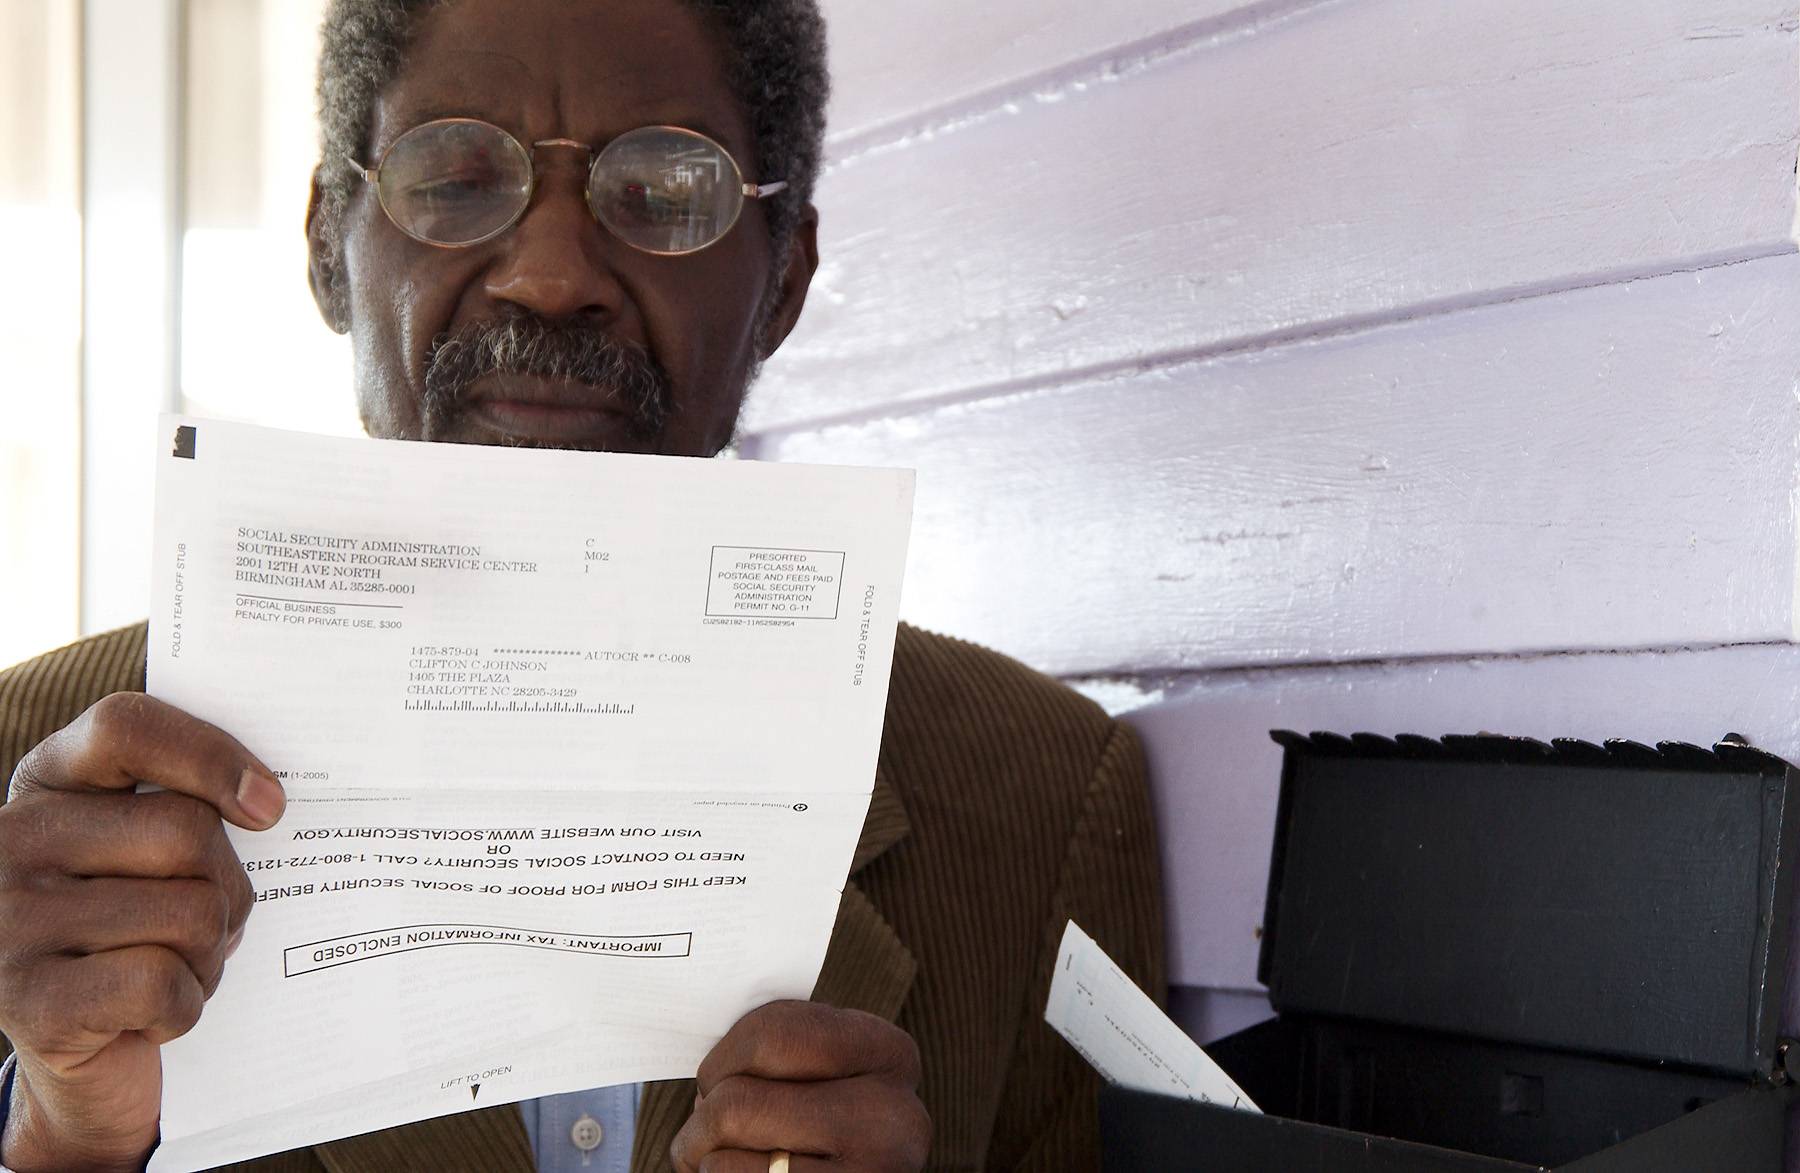 SOCIAL SECURITY ADMINISTRATION
SOUTHEASTERN PROGRAM SERVICE CENTER
2001 12TH AVE NORTH
BIRMINGHAM AL 35285-0001
OFFICIAL BUSINESS
PENALTY FOR PRIVATE USE, $300
C
M02
1
PRESORTED
FIRST-CLASS MAIL
POSTAGE AND FEES PAID
SOCIAL SECURITY
ADMINISTRATION
PERMIT NO. G-11
FOLD & TEAR OFF STUB
FOLD & TEAR OFF STUB
1475-879-04 ************** AUTOCR ** C-008
CLIFTON C JOHNSON
1405 THE PLAZA
CHARLOTTE NC 28205-3429
SM (1-2005)
Printed on recycled paper
VISIT OUR WEBSITE WWW.SOCIALSECURITY.GOV
OR
NEED TO CONTACT SOCIAL SECURITY? CALL 1-800-772-1213
KEEP THIS FORM FOR PROOF OF SOCIAL SECURITY BENEFI
IMPORTANT: TAX INFORMATION ENCLOSED
LIFT TO OPEN